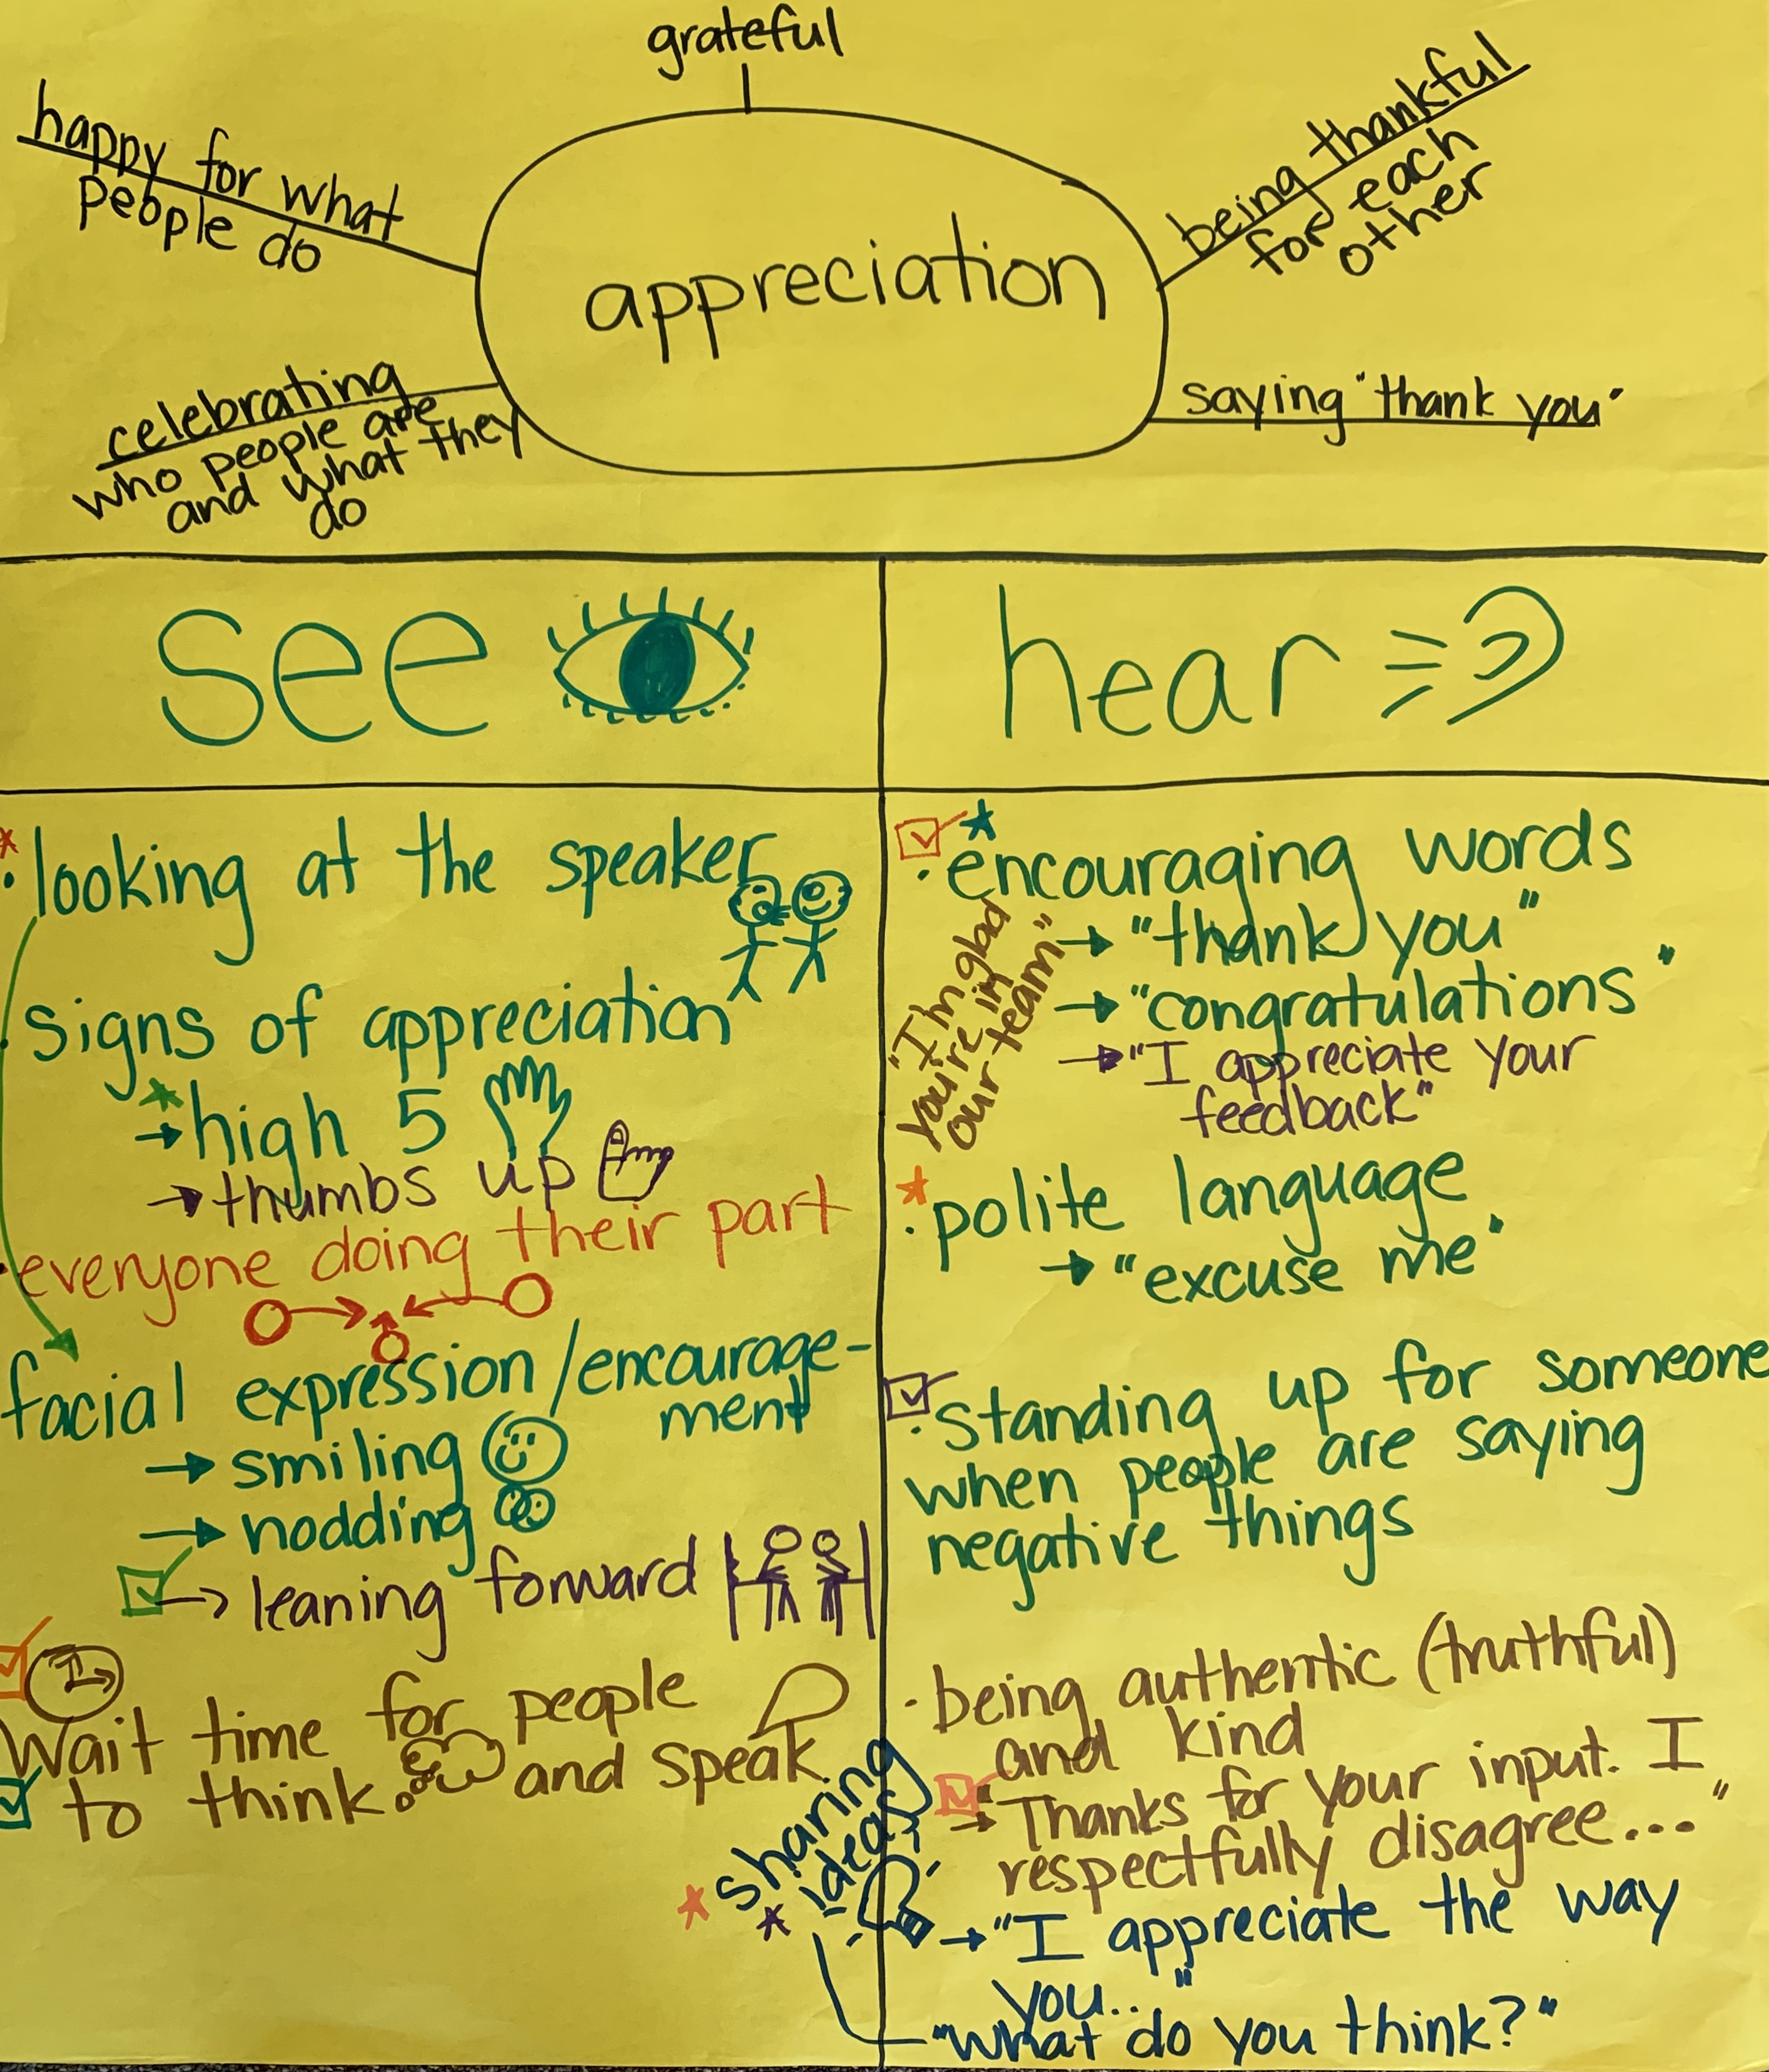 grateful
happy for what
people do
being thankful
for each
other
appreciation
celebrating
who people are
and what they
do
saying "thank you"
see
hear
looking at the speaker
signs of appreciation
high 5
thumbs up
everyone doing their part
facial expression/encourage-
ment
smiling
nodding
leaning forward
Wait time for people
to think and speak
sharing
ideas
encouraging words
"thank you"
"congratulations"
"I appreciate your
feedback"
"I'm glad
you're in
our team"
polite language
"excuse me"
standing up for someone
when people are saying
negative things
being authentic (truthful)
and kind
"Thanks for your input. I
respectfully disagree..."
"I appreciate the way
you..."
"What do you think?"